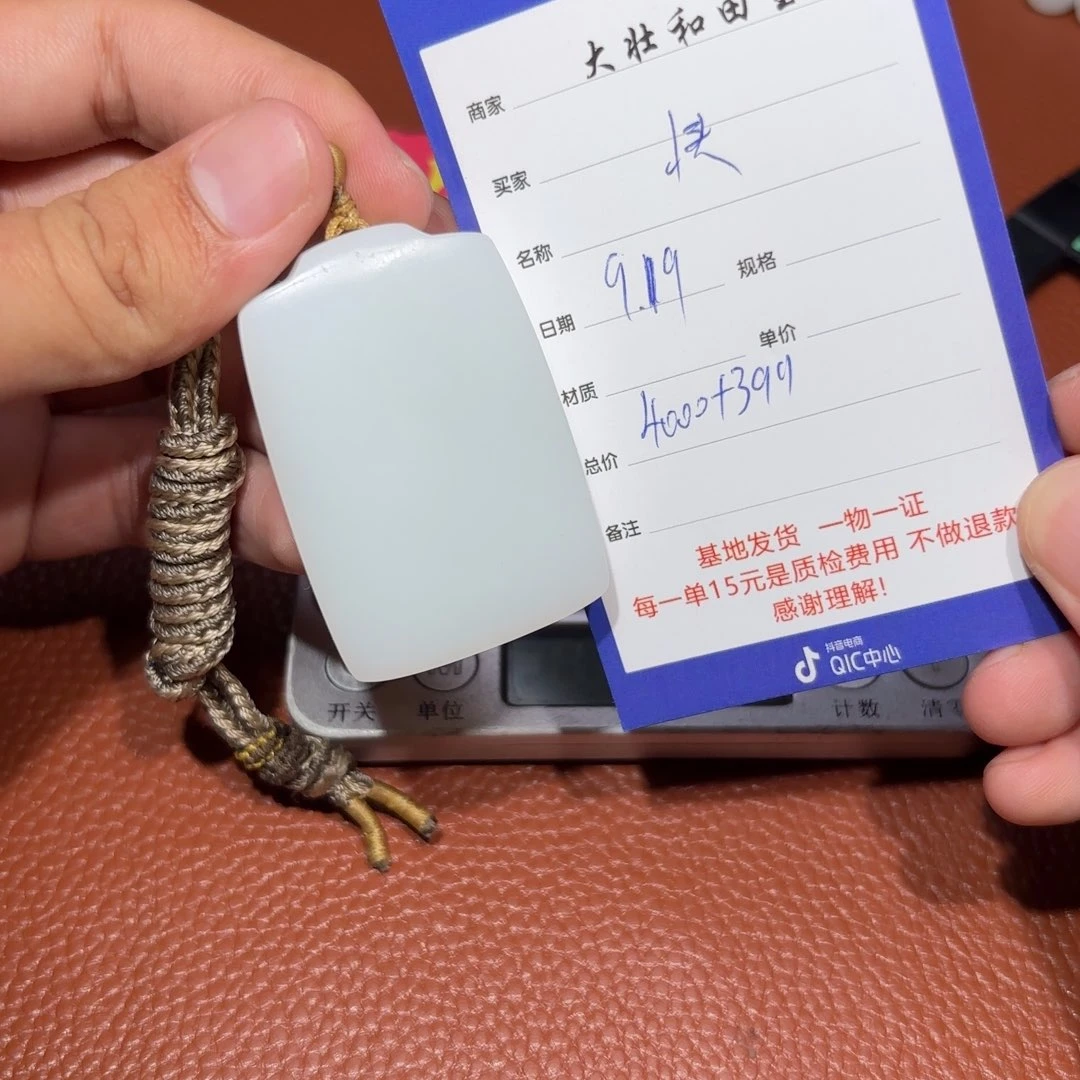 大壮和田
商家
买家 快
名称
日期 9.19 规格
材质 单价
总价 4000+399
备注
基地发货 一物一证
每一单15元是质检费用 不做退款
感谢理解!
抖音电商
QIC中心
开关 单位 计数 清